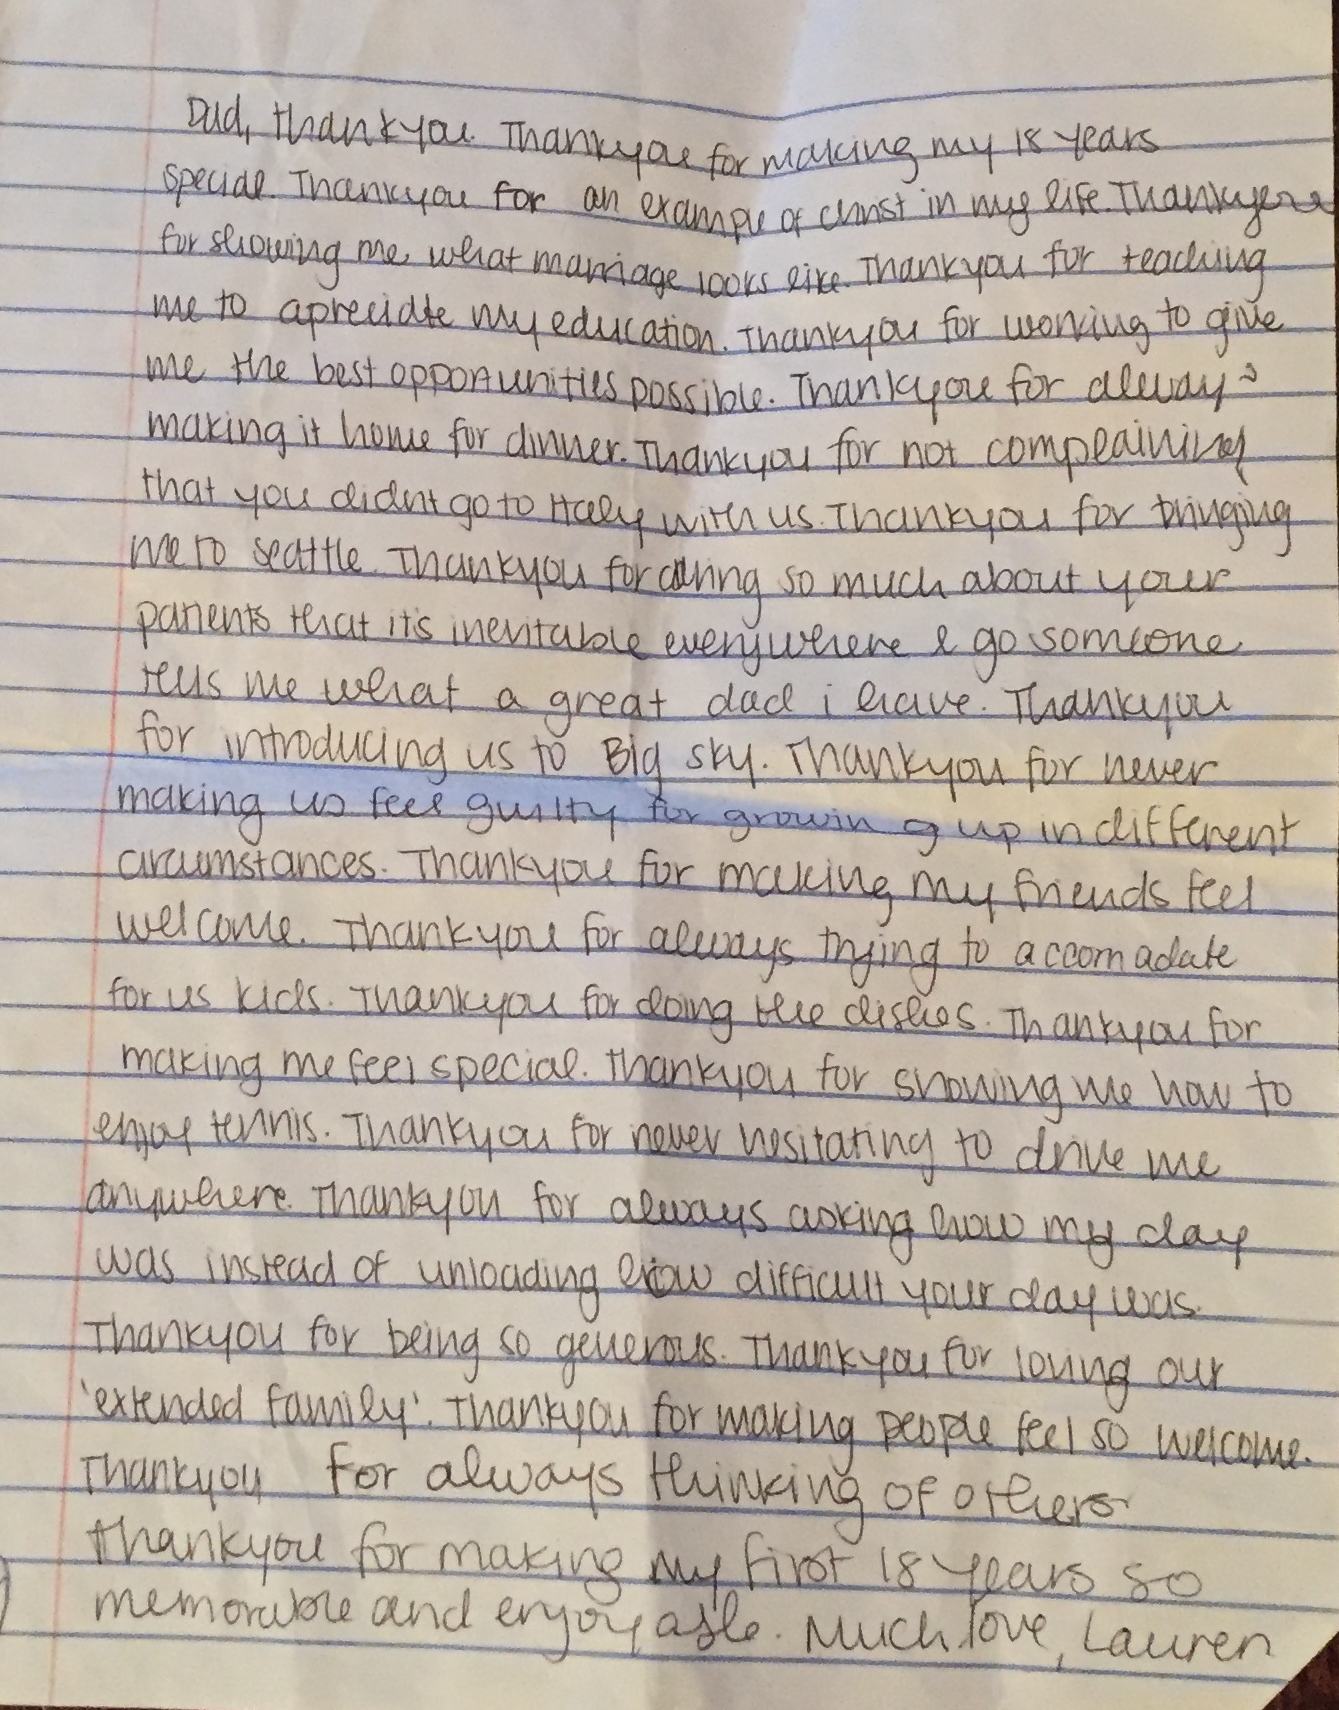 Dad, thankyou. Thankyou for making my 18 years
special. Thankyou for an example of Christ in my life. Thankyou
for showing me what marriage looks like. Thankyou for teaching
me to apreciate my education. Thankyou for working to give
me the best opportunities possible. Thankyou for always
making it home for dinner. Thankyou for not complaining
that you didnt go to Italy with us. Thankyou for bringing
me to seattle. Thankyou for caring so much about your
patients that it's inevitable everywhere I go someone
tells me what a great dad i have. Thankyou
for introducing us to Big sky. Thankyou for never
making us feel guilty for growing up in different
circumstances. Thankyou for making my friends feel
welcome. Thankyou for always trying to accomadate
for us kids. Thankyou for doing the dishes. Thankyou for
making me feel special. Thankyou for showing me how to
enjoy tennis. Thankyou for never hesitating to drive me
anywhere. Thankyou for always asking how my day
was instead of unloading how difficult your day was.
Thankyou for being so generous. Thankyou for loving our
'extended family'. Thankyou for making people feel so welcome.
Thankyou for always thinking of others
thankyou for making my first 18 years so
memorable and enjoyable. Much love, Lauren